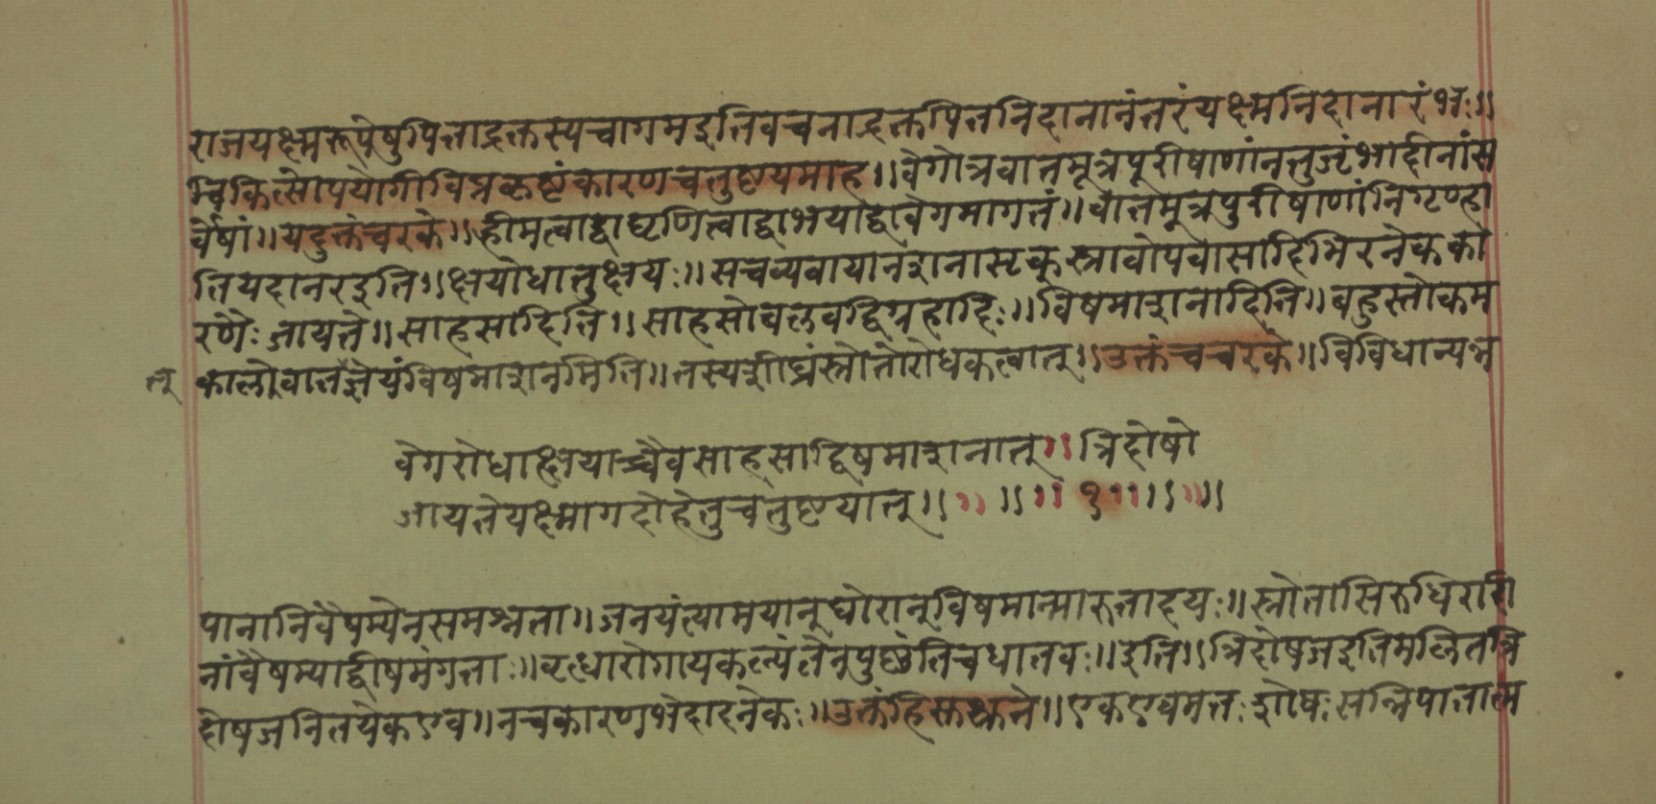 राजयक्ष्मरूपेषुपित्ताद्रक्तस्यचागमइतिवचनाद्रक्तपित्तनिदानानंतरंयक्ष्मनिदानारंभः॥
चिकित्सोपयोगीविप्रकृष्टंकारणचतुष्टयमाह॥वेगोत्रवातमूत्रपूरीषाणांनतुजृंभादीनांस
र्वेषां॥यदुक्तंचरके॥ह्रीमत्वाद्वाघृणित्वाद्वाभयाद्वावेगमागतं॥वातमूत्रपुरीषाणांनिगृण्हा
तियदानरइति॥क्षयोधातुक्षयः॥सचव्यवायानशनासृक्स्रावोपवासादिभिरनेकका
रणैःजायते॥साहसादिति॥साहसोबलवद्विग्रहादिः॥विषमाशनादिति॥बहुस्तोकम
कालोवातज्ञेयंविषमाशनमिति॥तस्यशीघ्रंस्रोतोरोधकत्वात्॥उक्तंचचरके॥विविधान्यन्न
त्
वेगरोधात्क्षयाच्चैवसाहसाद्विषमाशनात्॥त्रिदोषो
जायतेयक्ष्मागदोहेतुचतुष्टयात्॥॥॥॥१॥॥॥॥
पानानिवैषम्येनसमश्नता॥जनयंत्यामयान्घोरान्विषमान्मारुतादयः॥स्रोतांसिरुधिरादी
नांवैषम्याद्वीषमंगताः॥रुध्वारोगायकल्प्यंतेनपुष्णंतिचधातवः॥इति॥त्रिदोषजइतिमलितत्रि
दोषजनितयेकएव॥नचकारणभेदादनेकः॥उक्तंहिसुश्रुतेन॥एकएवमतःशोषःसन्निपातात्म